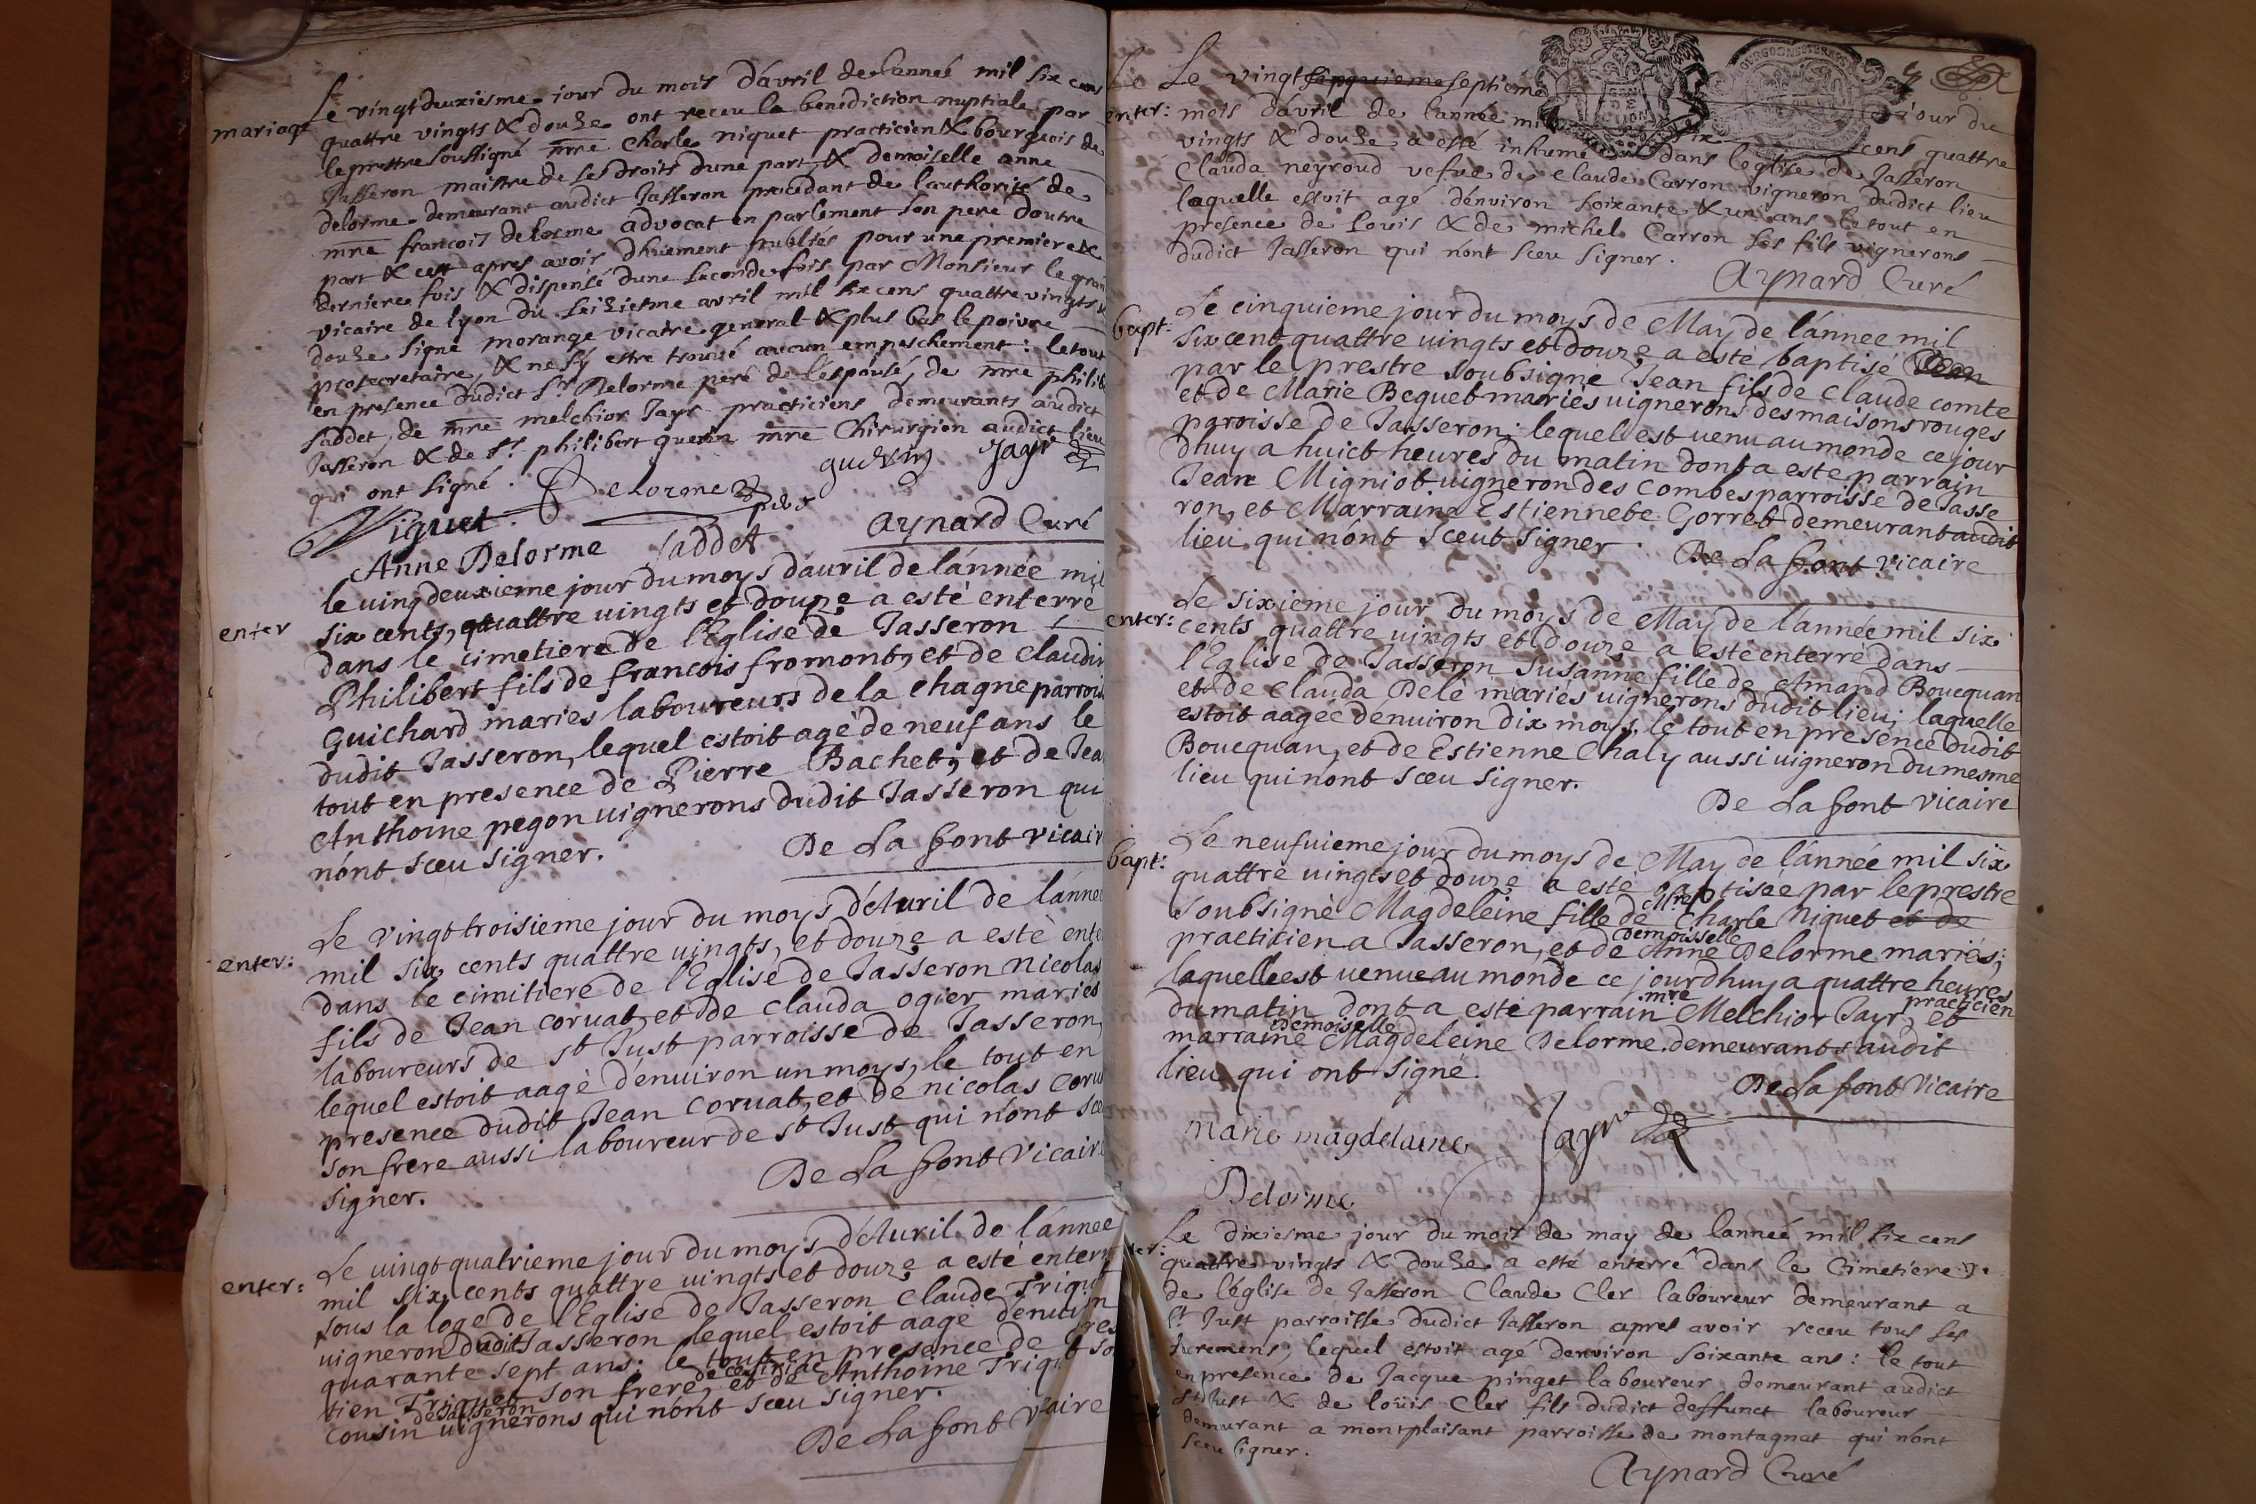 mariage
Le vingtdeuxiesme jour du mois d'avril de l'anneé mil six cens
quattre vingts & douze ont receu la benediction nuptiale par
le prestre soussigné mre Charle niquet practicien & bourgeois de
Jasseron maistre de ses droits dune part & demoiselle anne
delorme demeurant audict Jasseron procedant de l'authorité de
mre francois delorme advocat en parlement son peré d'outre
part & cest apres avoir dhuement publiés pour une premiere &
derniere fois & dispensé dune seconde fois par Monsieur le gran
vicaire de lyon du seiziesme avril mil six cens quattre vingts &
douze signé morange vicaire general & plus bas le poivre
prosecretaire, & ne s'y estre trouvé aucun empeschement: le tout
en presence dudict Sr Delorme peré de l'espouse, de mre philib
saddet, de mre melchior Jayr practiciens demeurants audict
Jasseron & de Sr philibert guerin mre Chirurgien audict lieu
qui ont signé.
Delorme
guerin
Jayr
Niquet
pere
Anne Delorme
saddet
Aynard Curé
enter
le vingdeuxieme jour du moys d'auril de l'année mil
six cents, quattre vingts et douze a esté enterré
dans le cimetiere de l'Eglise de Jasseron
Philibert fils de françois fromont, et de claudin
Guichard mariés laboureurs de la chagne parrois
dudit Jasseron, lequel estoit agé de neuf ans le
tout en presence de Pierre Bachet, et de Jea
Anthoine pegon vignerons dudit Jasseron qui
n'ont sceu signer.
De La font vicair
enter:
Le vingt troisieme jour du moys d'Auril de l'année
mil six cents quattre vingts, et douze a esté ente
dans le cimitiere de l'Eglise de Jasseron Nicolas
fils de Jean corvat, et de Clauda ogier mariés
laboureurs de st Just parroisse de Jasseron,
lequel estoit aagé d'enuiron un moys, le tout en
presence dudit Jean corvat, et de nicolas corv
son frere aussi laboureur de st Just qui n'ont sce
signer.
De La font vicaire
enter:
Le vingt quatrieme jour du moys d'Auril de l'année
mil six cents quattre vingts et douze a esté enterr
sous la loge de l'Eglise de Jasseron Claude Triqu
vigneron dudit Jasseron lequel estoit aagé d'enuiron
quarante sept ans. le tout en presence de
tien Triquet son frere, et de Anthoine Triquet so
cousin de Jasseron vignerons qui n'ont sceu signer.
De La font vicaire
Le vingt cinquieme septieme jour du
enter: mois d'avril de l'année mil six cens quattre
vingts & douze a esté inhumé dans l'eglise de Jasseron
Clauda neyroud vefve de Claude Carron vigneron dudict lieu
laquelle estoit agé d'environ soixante & un ans le tout en
presence de Louis & de michel Carron ses fils vignerons
dudict Jasseron qui n'ont sceu signer.
Aynard Curé
bapt:
Le cinquieme jour du moys de May de l'année mil
six cent quattre vingts et douze a esté baptisé Jean
par le prestre soubsigné Jean fils de claude comte
et de Marie Bequet mariés vignerons des maisons rouges
paroisse de Jasseron; lequel est venu au monde ce jour
dhuy a huict heures du matin dont a esté parrain
Jean Migniot vigneron des combes parroisse de Jasse
ron, et Marraine Estiennete Gorret demeurant audit
lieu qui n'ont sceut signer.
De La font vicaire
enter:
Le sixieme jour du moys de May de l'année mil six
cents quattre vingts et douze a esté enterré dans
l'Eglise de Jasseron Susanne fille de Amand Boucquan
et de Clauda Delé mariés vignerons dudit lieu; laquelle
estoit aagée d'enuiron dix moys, le tout en presence dudit
Boucquan, et de Estienne Chaly aussi vigneron du mesme
lieu qui n'ont sceu signer.
De La font vicaire
bapt:
Le neufuieme jour du moys de May de l'année mil six
quattre vingts et douze a esté baptisée par le prestre
soubsigné Magdeleine fille de Mre Charle Niquet et de
practicien a Jasseron, et de demoisselle Anne Delorme mariés;
laquelle est venue au monde ce jourdhuy a quattre heures
du matin dont a esté parrain mre Melchior Jayr practicien, et
marraine demoiselle Magdeleine Delorme demeurants audit
lieu qui ont signé.
De La font vicaire
marie magdelaine
Jayr
Delorme
Le dixiesme jour du mois de may de l'anneé mil six cens
quattre vingts & douze a esté enterré dans le Cimetiere
de l'église de Jasseron Claude Cler laboureur demeurant a
St Just parroisse dudict Jasseron apres avoir receu tous ses
sacremens, lequel estoit agé d'environ soixante ans: le tout
en presence de Jacque pinget laboureur demeurant audict
St Just & de loüis Cler fils dudict deffunct laboureur
demeurant a montplaisant parroisse de montagnat qui n'ont
sceu signer.
Aynard Curé